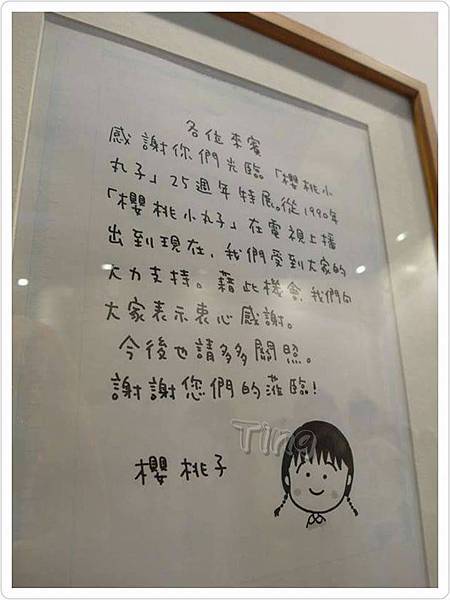 各位來賓
感謝你們光臨「櫻桃小
丸子」25週年特展。從1990年
「櫻桃小丸子」在電視上播
出到現在，我們受到大家的
大力支持。藉此機會，我們向
大家表示衷心感謝。
今後也請多多關照。
謝謝您們的蒞臨！
Ting
櫻桃子